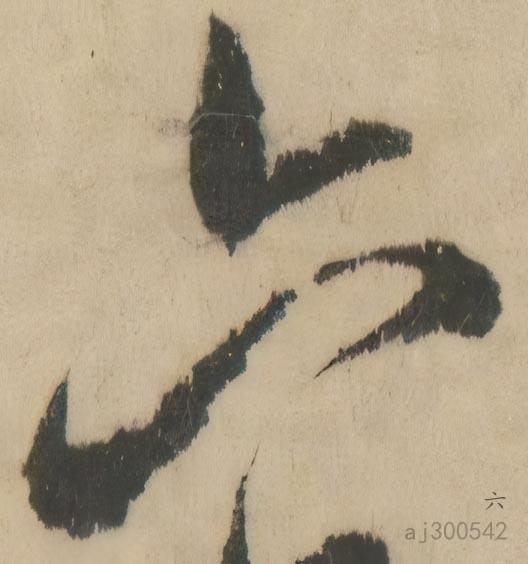 六
六
aj300542